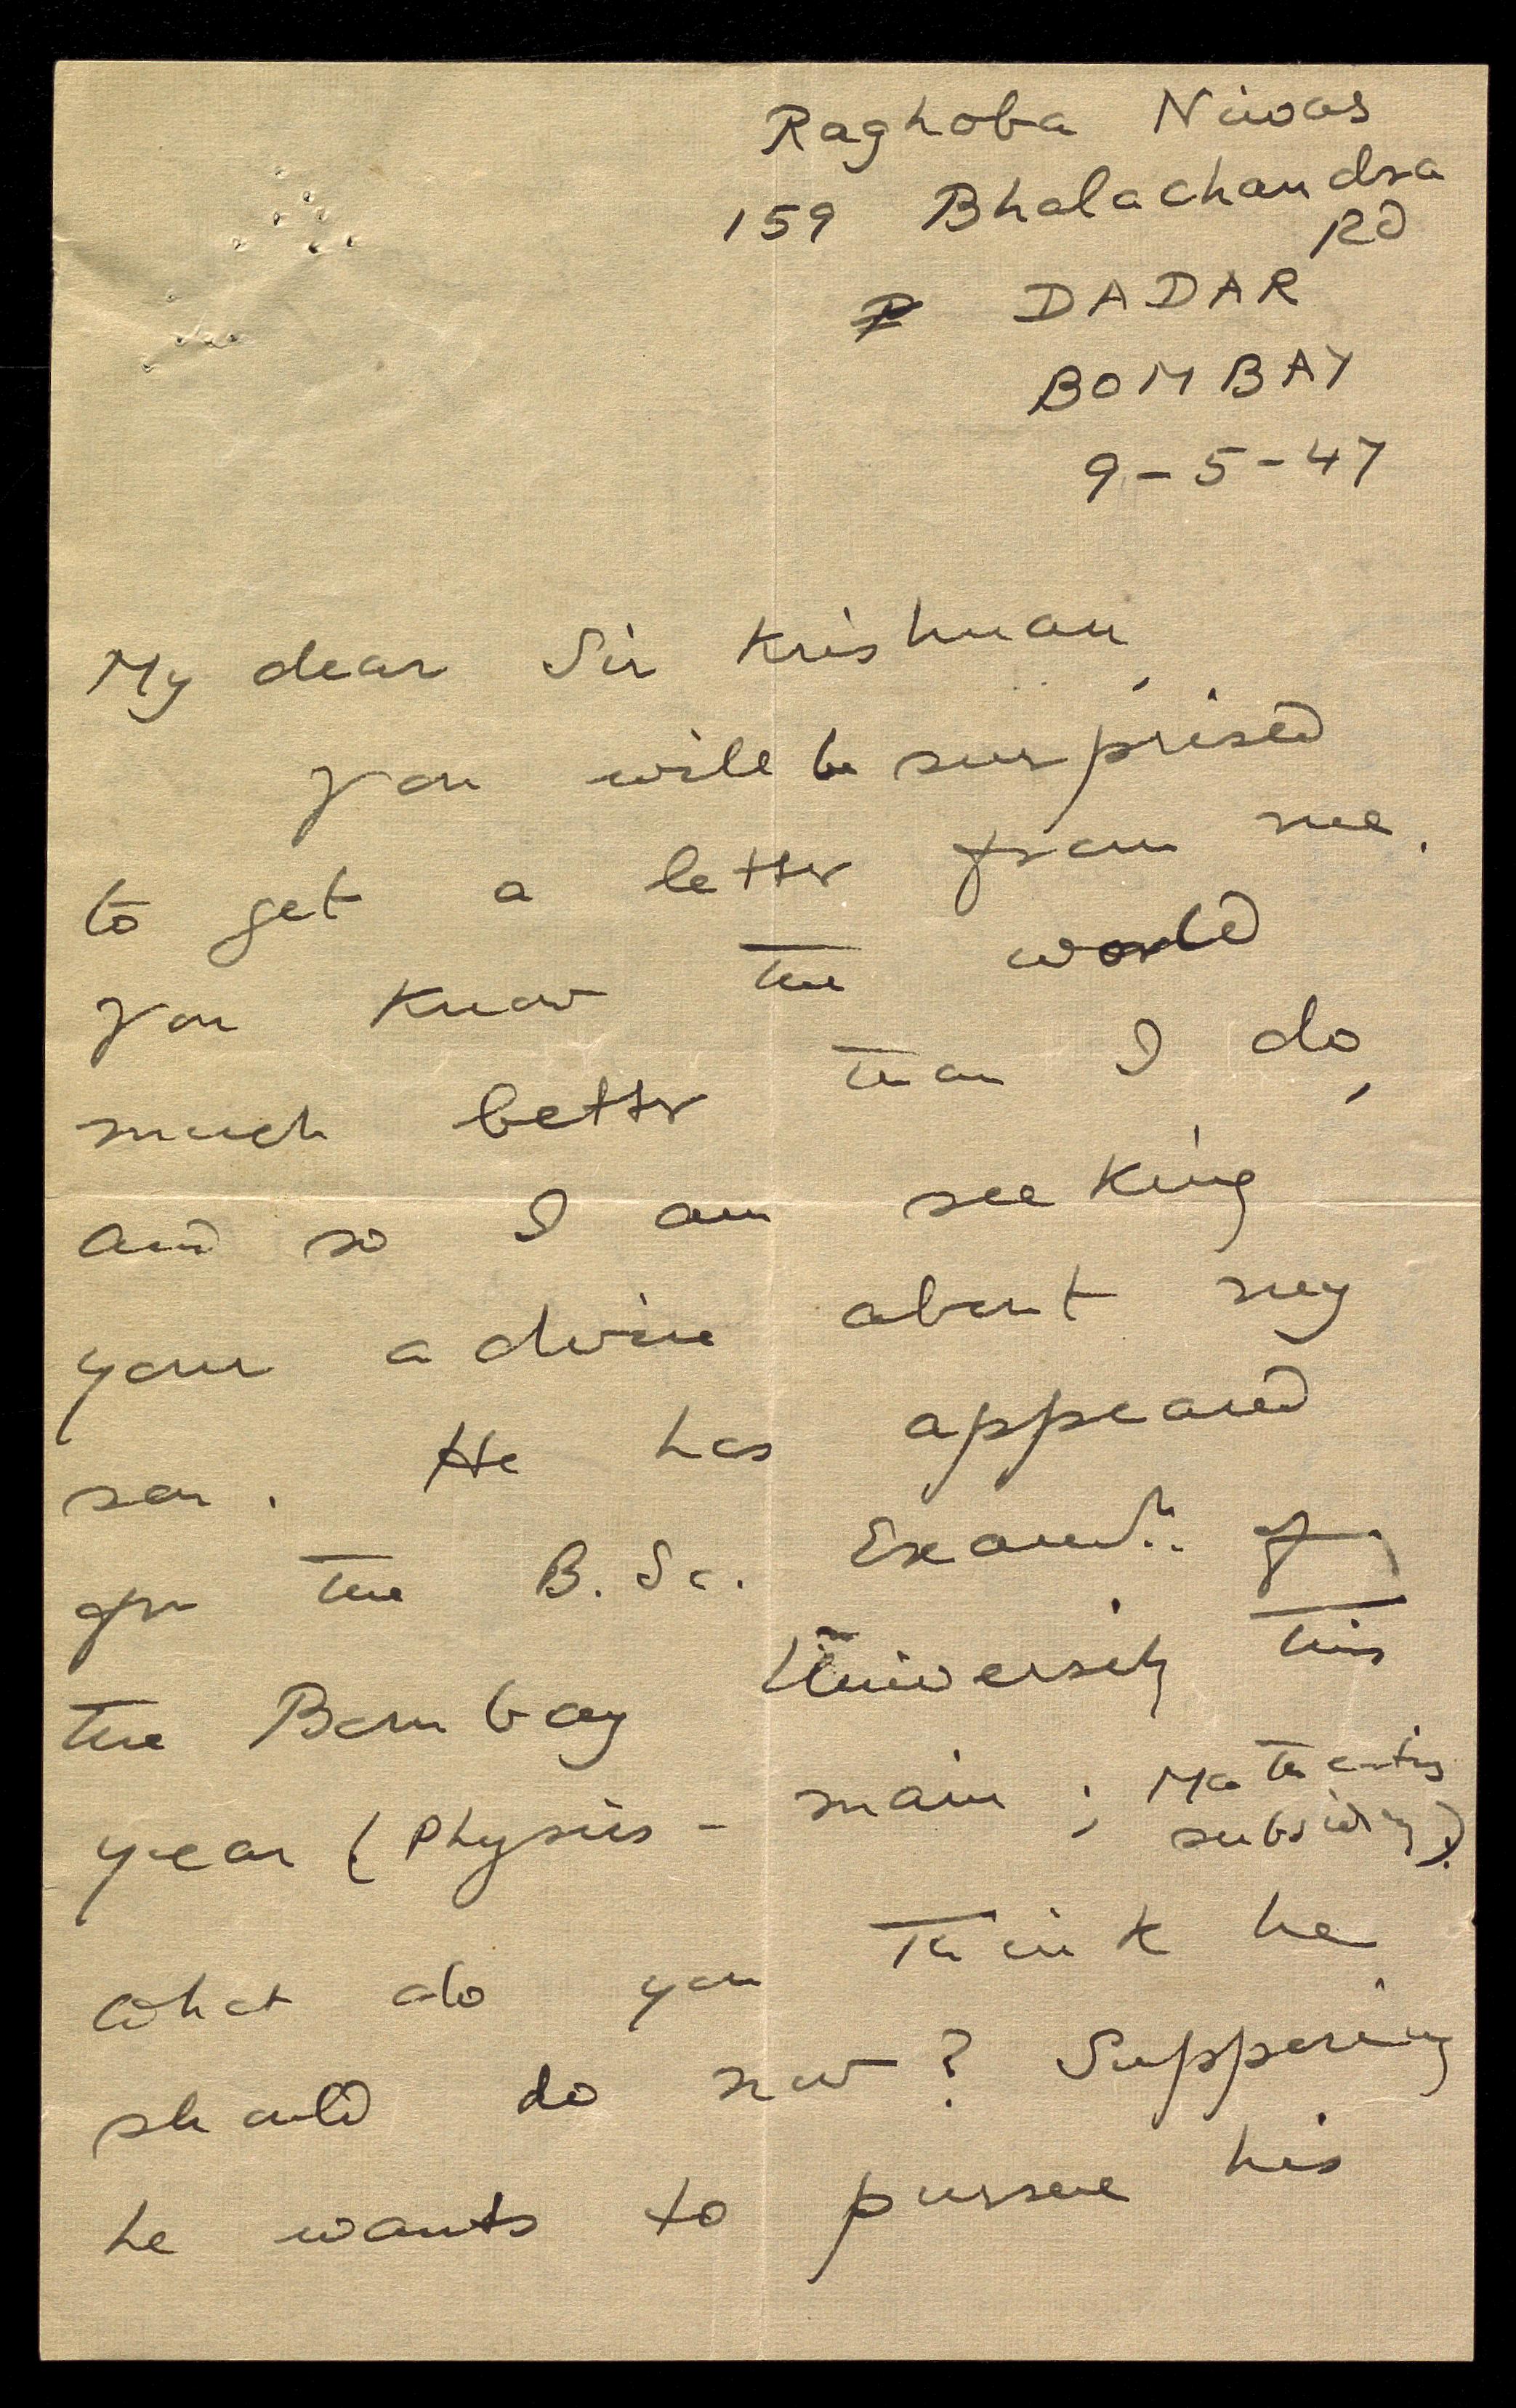 Raghoba Niwas
159 Bhalachandra
Rd
DADAR
BOMBAY
9-5-47
My dear Sir Krishnan,
You will be surprised
to get a letter from me.
You know the world
much better than I do,
and so I am seeking
your advice about my
son. He has appeared
for the B.Sc. Examn. of
the Bombay University this
year (Physics - main ; Mathematics
subsidiary).
What do you think he
should do now? Supposing
he wants to pursue his